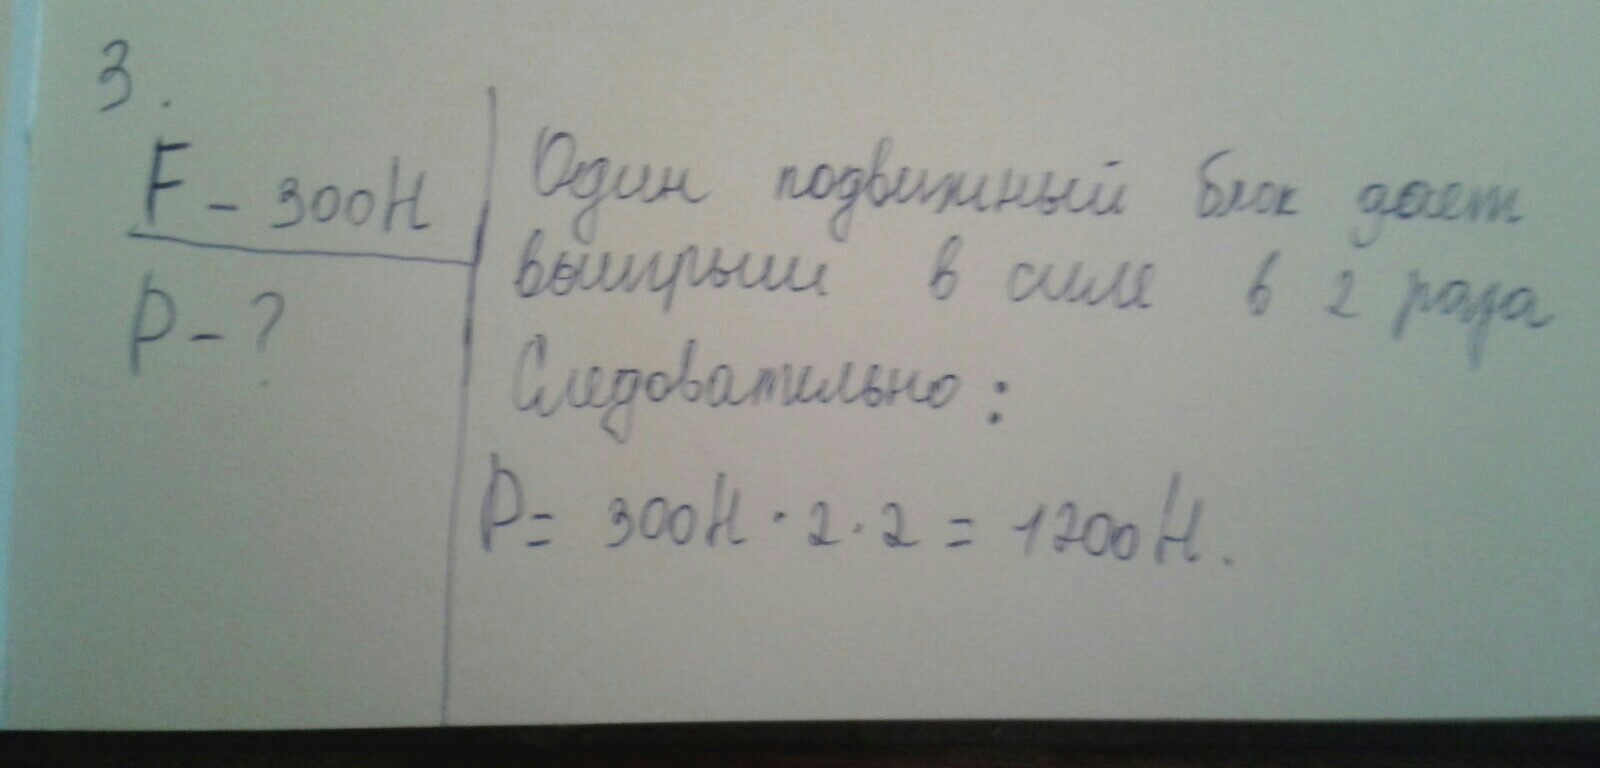 3.
F - 300Н
P - ?
Один подвижный блок дает
выигрыш в силе в 2 раза
Следовательно:
P = 300Н · 2 · 2 = 1200Н.